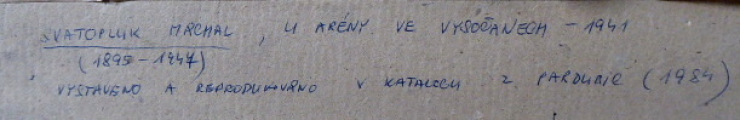 SVATOPLUK MRCHAL, U ARÉNY VE VYSOČANECH - 1941
(1895-1947)
VYSTAVENO A REPRODUKOVÁNO V KATALOGU Z PARDUBIC (1984)